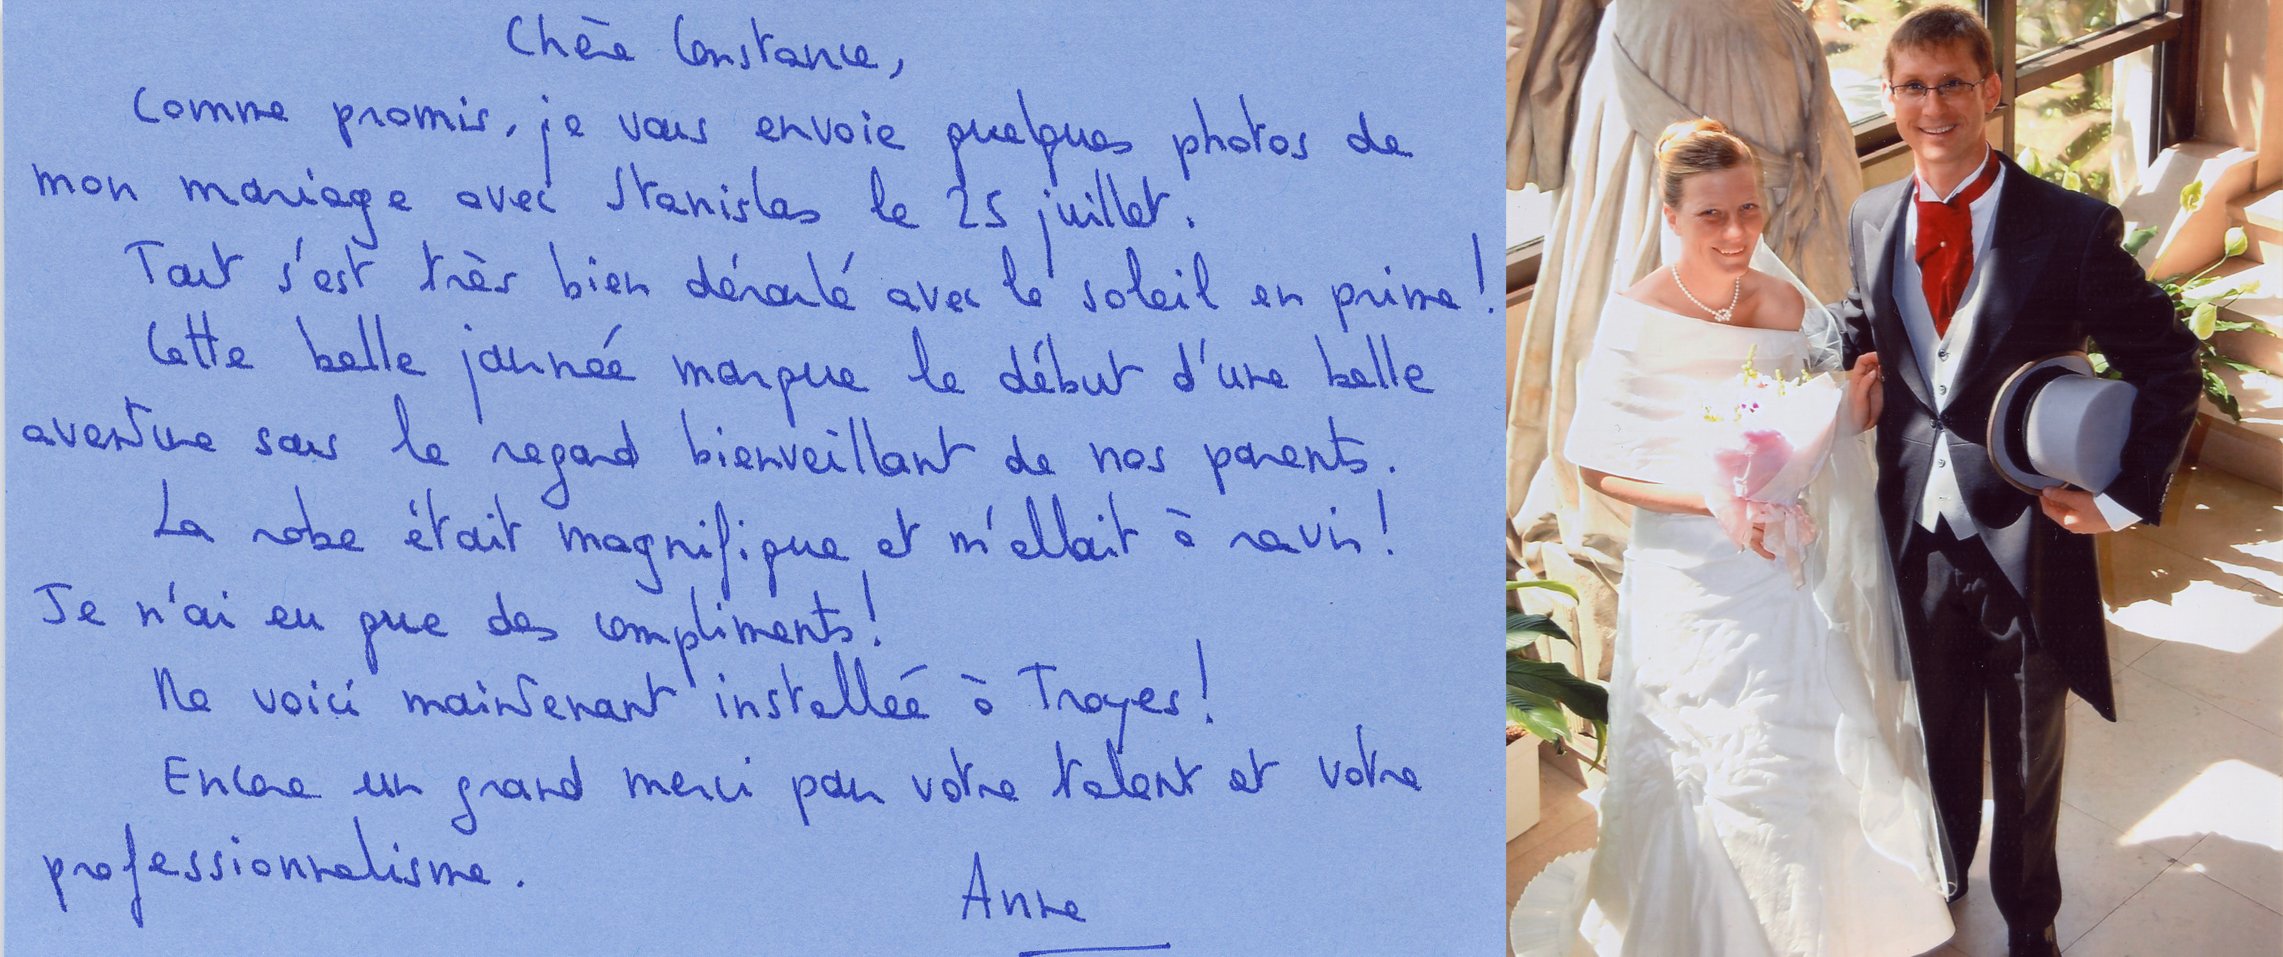 Chère Constance,
Comme promis, je vous envoie quelques photos de
mon mariage avec Stanislas le 25 juillet.
Tout s'est très bien déroulé avec le soleil en prime !
Cette belle journée marque le début d'une belle
aventure sous le regard bienveillant de nos parents.
La robe était magnifique et m'allait à ravir !
Je n'ai eu que des compliments !
Me voici maintenant installée à Troyes !
Encore un grand merci pour votre talent et votre
professionnalisme.
Anne